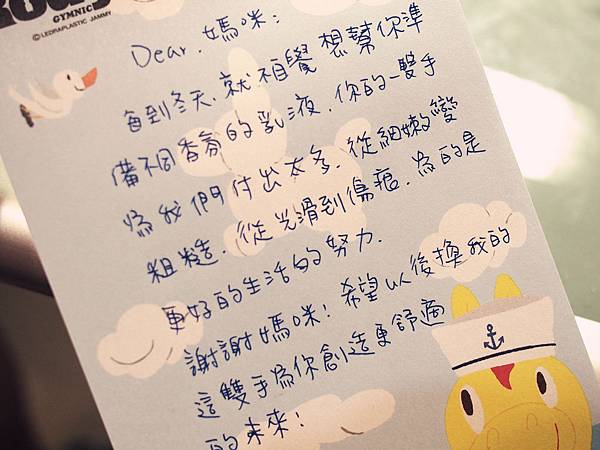 GYMNIC
©LEDRAPLASTIC JAMMY
Dear. 媽咪:
每到冬天.就不自覺想幫你準
備不同香氛的乳液.你的一雙手
為我們付出太多.從細嫩變
粗糙.從光滑到傷痕.為的是
更好的生活的努力.
謝謝媽咪!希望以後換我的
這雙手為你創造更舒適
的未來!